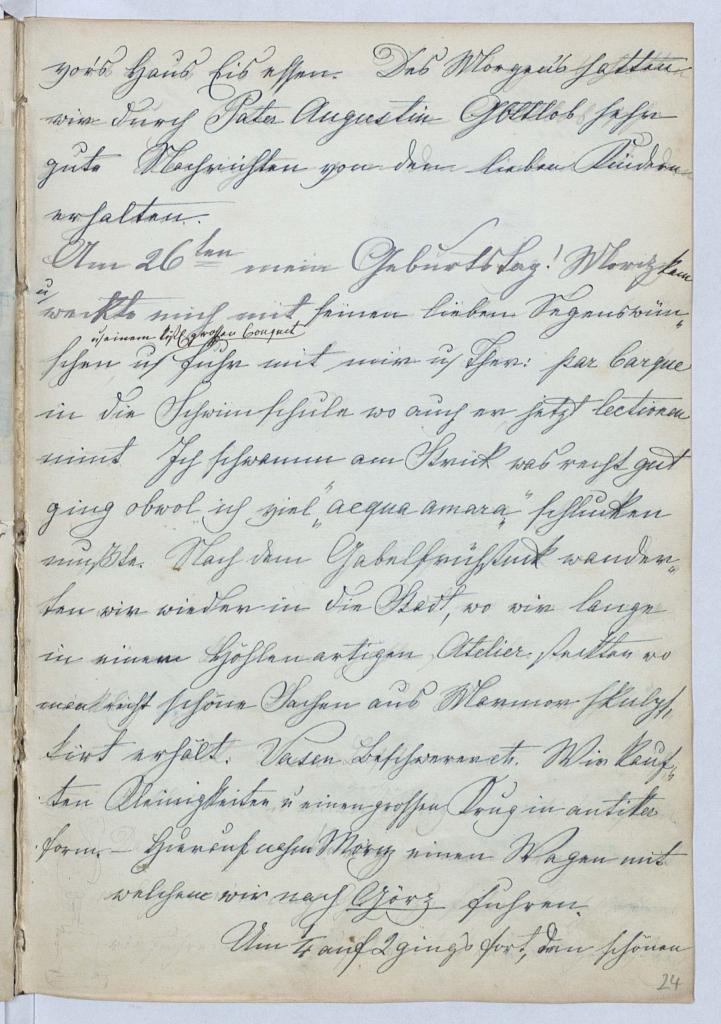 vors Haus Eis essen. Des Morgens hatten
wir durch Pater Augustin Gottlob sehr
gute Nachrichten von den lieben Kindern
erhalten.
Am 26ten mein Geburtstag! Moriz kam
u weckte mich mit seinen lieben Segenswün„
u einem großen bouquet
schen u fuhr mit mir u Ther: par barque
in die Schwimschule wo auch er jetzt lectionen
nimt Ich schwamm am Strick was recht gut
ging obwol ich viel „aequa amara" schlucken
mußte. Nach dem Gabelfrühstück wander„
ten wir wieder in die Stadt, wo wir lange
in einem Höhlenartigen Atelier steckten wo
man recht schöne Sachen aus Marmor skulpt„
tirt erhält. Vasen Beschwerer etc. Wir kauf„
ten Kleinigkeiten u einen grossen Krug in antiker
form. – Hierauf nahm Moriz einen Wagen mit
welchem wir nach Görz fuhren.
Um 1/4 auf 2 ging's fort, den schönen
24